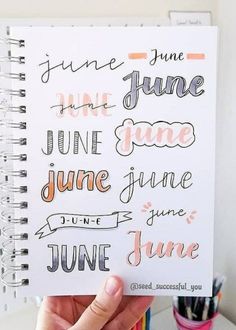 june
June
JUNE
june
June
JUNE
june
june
june
J-U-N-E
june
JUNE
June
@seed_successful_you